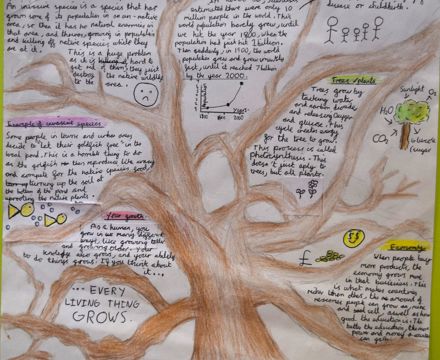 An invasive species is a species that has
grown some of its population in a non-native
area, so then it has no natural enemies in
that area, and thrives, growing in population
and killing off native species while they
are at it.
This is a huge problem
as it is hard to
get rid of them; they just
destroy the native wildlife
areas.
estimated that there were only 10
million people in the world. This
world population barely grew, until
we hit the year 1800, when the
population had just hit 1 billion.
Then suddenly, in 1900, the world
population grew and grew
fast, until it reached 7 billion
by the year 2000.
disease or childbirth.
Trees + plants
Trees grow by
taking water
and carbon dioxide,
and releasing oxygen
and glucose. This
cycle creates energy
for the tree to grow.
This process is called
photosynthesis. This
doesn't just apply to
trees, but all plants.
Sunlight
H₂O
O₂
CO₂
Glucose
(sugar)
Example of invasive species
Some people in towns and urban areas
decide to let their goldfish "go" in the
local pond. This is a horrible thing to do
as the goldfish reproduce like crazy
and compete for the native species' food,
turning up the soil at
the bottom of the pond and
uprooting the native plants.
Your growth
As a human, you
grow in so many different
ways, like growing taller
and growing older. Your
knowledge also grows, and your ability
to do things grows. If you think about
it...
... EVERY
LIVING THING
GROWS.
Economy
When people buy
more products, the
economy grows more
in that business. This
is what makes countries
richer than others, the amount of
resources people can grow or mine
and sell, as well as how
good the education is. The
better the education, the more
power and money a country
can gain.
£